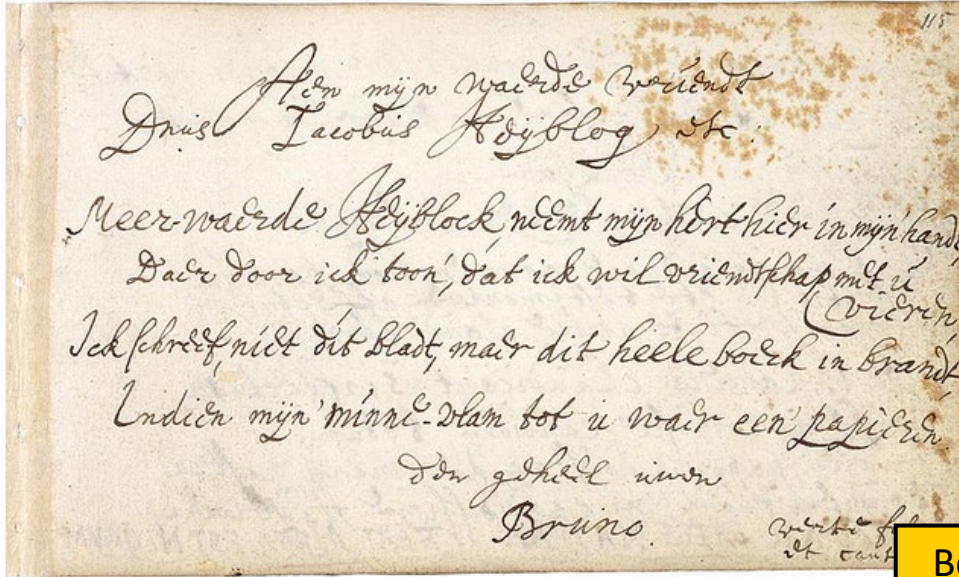 115
Aen mijn waerde vriendt
Dnus Iacobus Heÿblog etc
Meer-waerde Heÿblock neemt mijn hert hier in mijn handt,
Daer door ick toon', dat ick wil vriendtschap met u
(vieren
Ick schreef, niet dit bladt, maer dit heele boeck in brandt,
Indien mijn' minne-vlam tot u waer een' papieren.
den geheel uwen
Bruno.
verte
et
Be